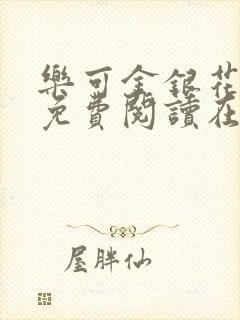 樂可金銀花
免費閱讀在
屋胖仙